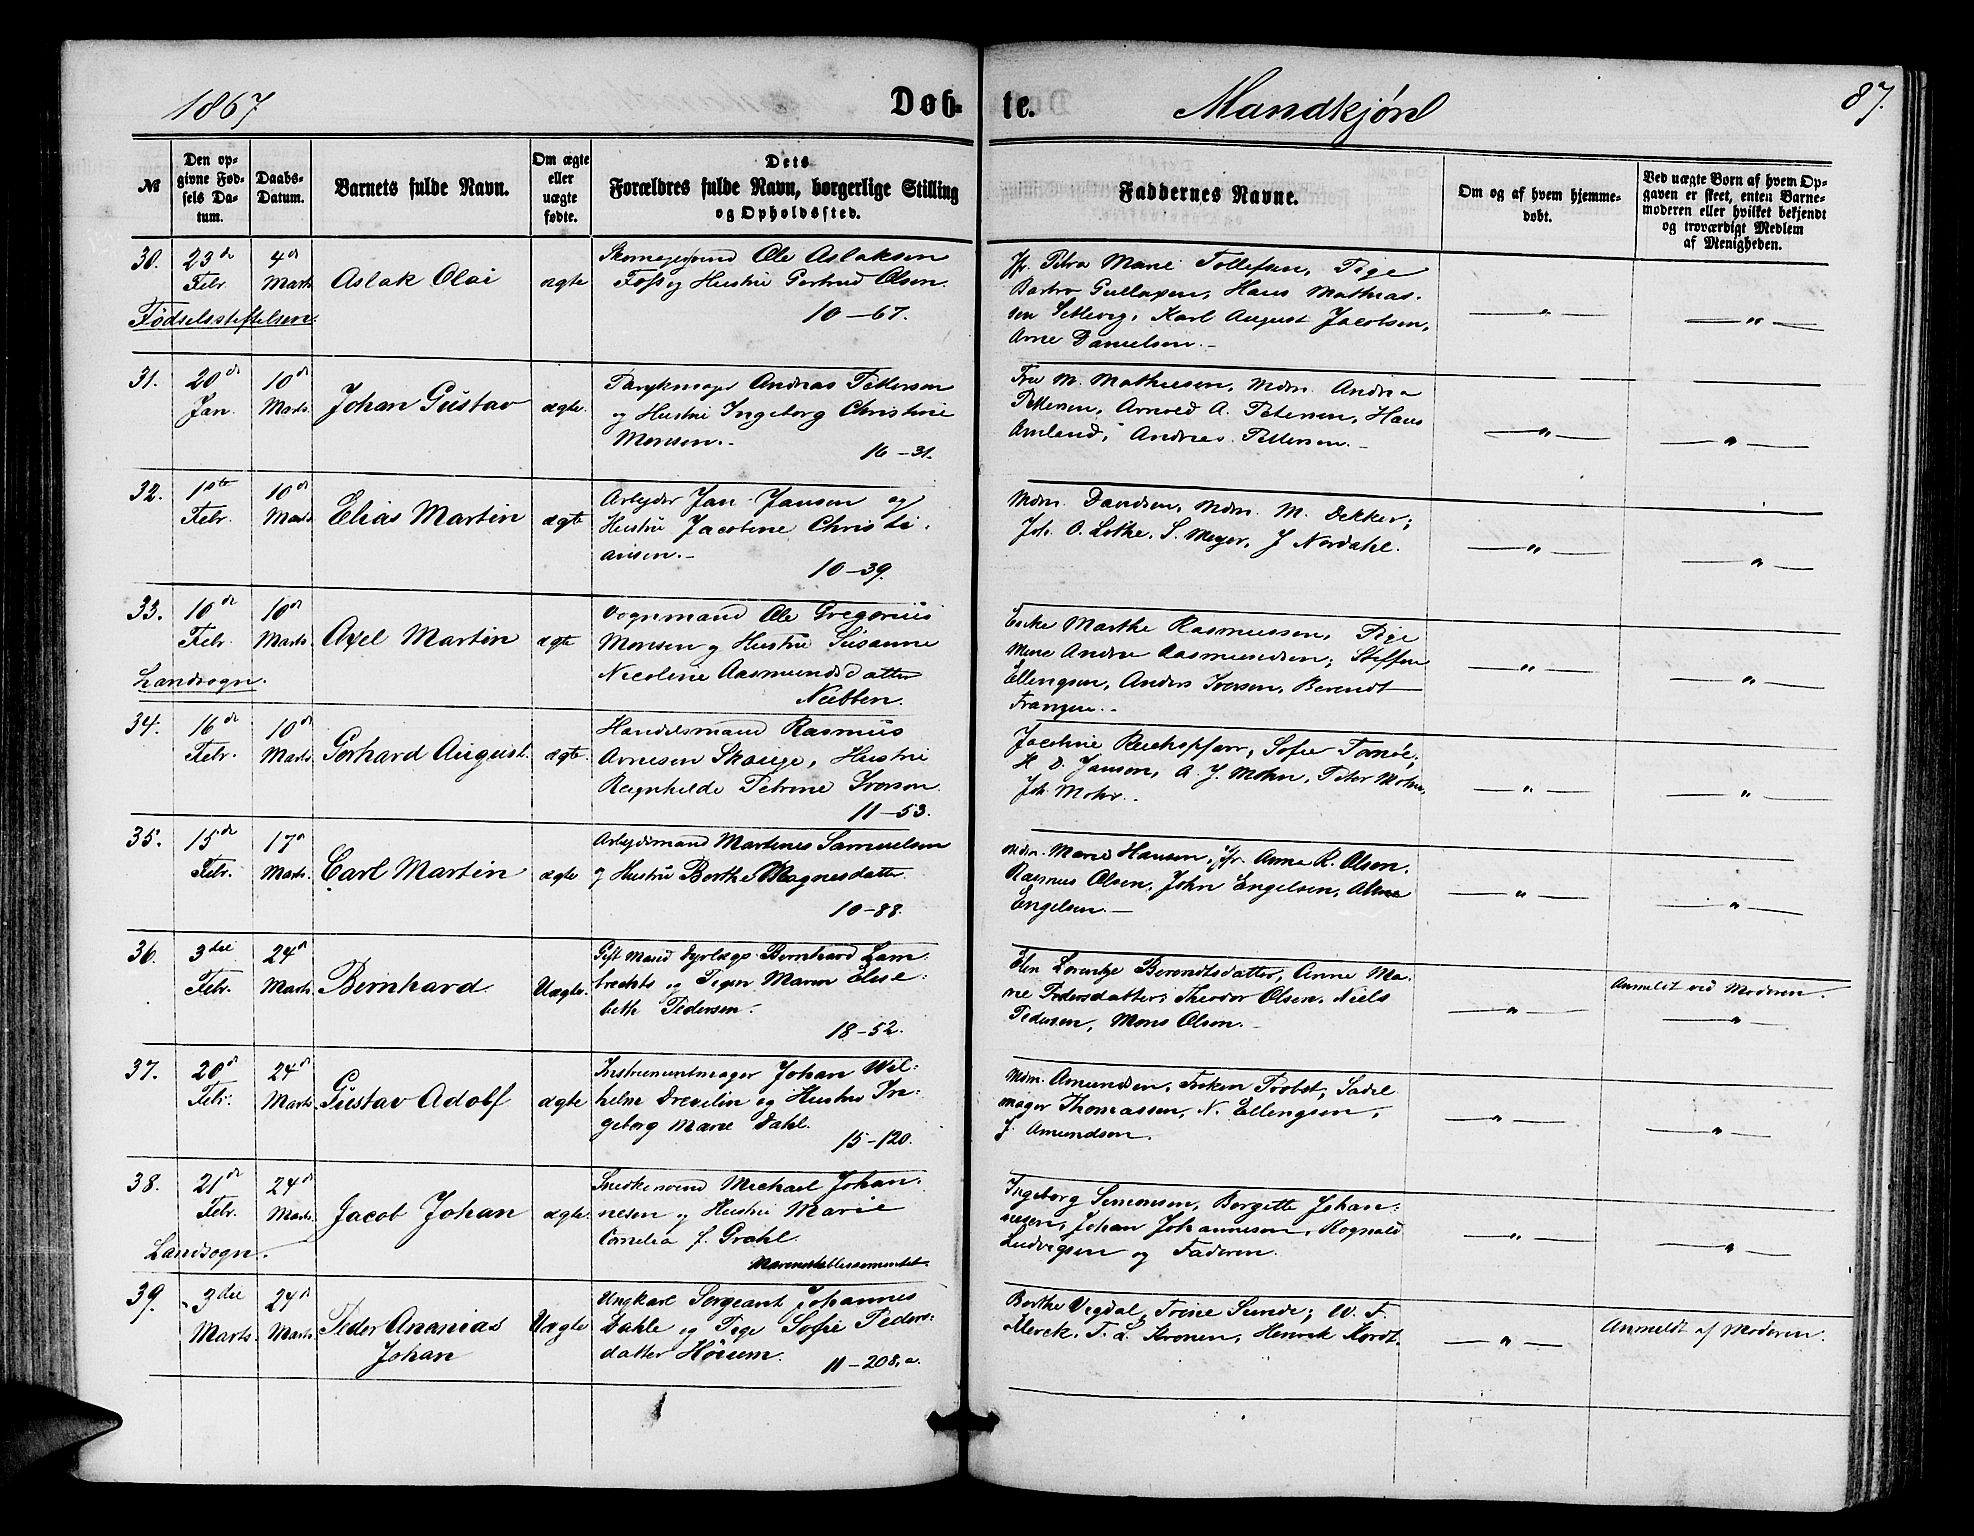 1867
Døb-
te.
Mandkjøn
87.
№
Den op-
givne Fød-
sels Da-
tum.
Daabs-
Datum.
Barnets fulde Navn.
Om ægte
eller
uægte
fødte.
Dets
Forældres fulde Navn, borgerlige Stilling
og Opholdssted.
Faddernes Navne.
Om og af hvem hjemme-
døbt.
Ved uægte Børn af hvem Op-
gaven er skeet, enten Barne-
moderen eller hvilket bekjendt
og troværdigt Medlem
af Menigheden.
30.
23de
Febr.
4de
Marts
Aslak Olai
ægte
Skomagersvend Ole Aslaksen
Foss og Hustru Gertrud Olsen.
10-67.
Fødselsstiftelsen.
Jfr. Petra Marie Tollefsen, Pige
Barbro Gullaxen, Hans Mathias-
sen Setlevig, Karl August Jacobsen,
Arne Danielsen.-
31.
20de
Jan.
10de
Marts.
Johan Gustav
ægte.
Andreas Pettersen
og Hustru Ingeborg Christine
Monsen.-
16-31.
Fru M. Mathiesen, Mdm. Andrea
Pettersen, Arnold A. Petersen, Hans
Amland, Andreas Pettersen.-
32.
1ste
Febr.
10de
Marts
Elias Martin
ægte
Arbejder Jan Jansen og
Hustru Jacobine Christi-
ansen.-
10-39.
Mdm. Davidsen, Mdm. M. Dekker;
Joh. O. Lothe, S. Meyer, J Nordahl.
33.
10de
Febr.
10de
Marts.
Axel Martin
ægte
Vognmand Ole Gregorius
Monsen og Hustru Susanne
Nicoline Aasmundsdatter
Nubben.
Landsogn.
Enke Marthe Rasmussen, Pige
Andrea Aasmundsen; Steffen
Ellengsen, Anders Iversen, Berendt
Frantzen..
34.
16de
Febr.
10de
Marts.
Gerhard August.
ægte.
Handelsmand Rasmus
Arnesen Skauge, Hustru
Ragnhilde Petrine Iversen.
11-53.
Jacobine Reichspfarr, Sofie Fornøe;
H. D. Jansen, A. J. Mohn, Peter Mohn,
Joh. Mohr..
35.
15de
Febr.
17de
Marts.
Carl Martin
ægte
Arbejdsmand Martinus Samuelsen
og Hustru Berthe Magnesdatter.
10-88.
Mdm. Marie Hansen, Jfr. Anna R. Olsen.
Rasmus Olsen, John Engelsen, Anna
Engelsen.-
36.
3die
Febr.
24de
Marts.
Bernhard
Uægte.
Gift Mand Dyrlæge Bernhard Lam-
brechts og Pigen Maren Elise-
beth Pedersen.-
18-52.
Elen Lorentze Berendtsdatter, Anne Ma-
rie Pedersdatter; Theodor Olsen, Niels
Pedersen, Mons Olsen.-
Anmeldt ved Moderen.
37.
20de
Febr.
24de
Marts.
Gustav Adolf
ægte
Instrumentmager Johan Wil-
helm Drevelin og Hustru In-
geborg Marie Dahl.
15-120.
Mdm. Amundsen, Frøken Probst, Sadel
mager Thomassen, N. Ellengsen,
J. Amundsen.
38.
21de
Febr.
24de
Marts.
Jacob Johan
ægte.
Snedkersvend Michael Johan-
nesen og Hustru Marie
Cornelia f. Grahl.
Marineetablissementet.
Landsogn.
Ingeborg Simonsen, Bergitte Johan-
nesen, Johan Johannesen, Rognald
Ludvigsen og Faderen.
39.
3die
Marts.
24de
Marts
Peder Ananias
Johan
Uægte
Ungkarl Sergeant Johannes
Dahle og Pige Sofie Peders-
datter Hörum.
11-208.a.
Berthe Vegdal, Trine Sunde; W. F.
Merck, F. L. Kronen, Henrik Kordt.
Anmeldt af Moderen.